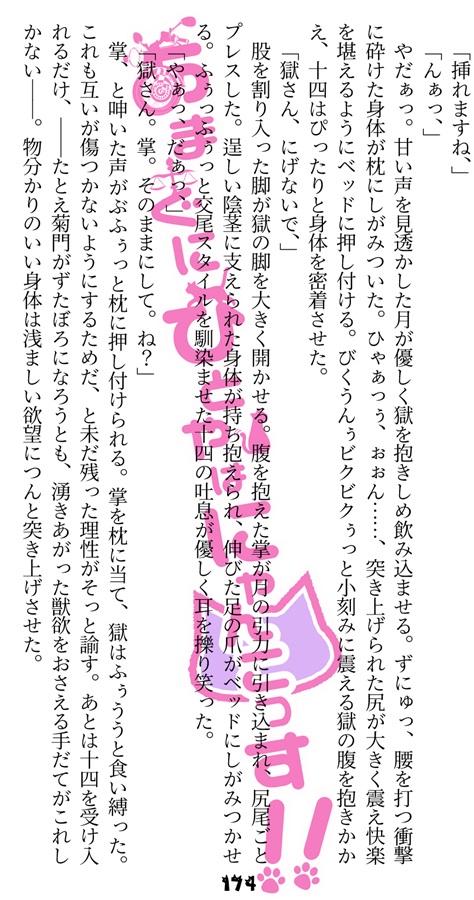 「挿れますね、」
「んぁっ、」
やだぁっ。甘い声を見透かした月が優しく獄を抱きしめ飲み込ませる。ずにゅっ、腰を打つ衝撃
に砕けた身体が枕にしがみついた。ひゃぁっぅ、ぉぉん……、突き上げられた尻が大きく震え快楽
を堪えるようにベッドに押し付ける。びくうんぅビクビクぅっと小刻みに震える獄の腹を抱きかか
え、十四はぴったりと身体を密着させた。
「獄さん、にげないで、」
股を割り入った脚が獄の脚を大きく開かせる。腹を抱えた掌が月の引力に引き込まれ、尻尾ごと
プレスした。逞しい陰茎に支えられた身体が持ち抱えられ、伸びた足の爪がベッドにしがみつかせ
る。ふぅっふぅっと交尾スタイルを馴染ませた十四の吐息が優しく耳を擽り笑った。
「やぁっ、だぁっ、」
「獄さん。掌。そのままにして。ね？」
掌、と呻いた声がぶふぅっと枕に押し付けられる。掌を枕に当て、獄はふぅううと食い縛った。
これも互いが傷つかないようにするためだ、と未だ残った理性がそっと諭す。あとは十四を受け入
れるだけ、――たとえ菊門がずたぼろになろうとも、湧きあがった獣欲をおさえる手だてがこれし
かない――。物分かりのいい身体は浅ましい欲望につんと突き上げさせた。
174